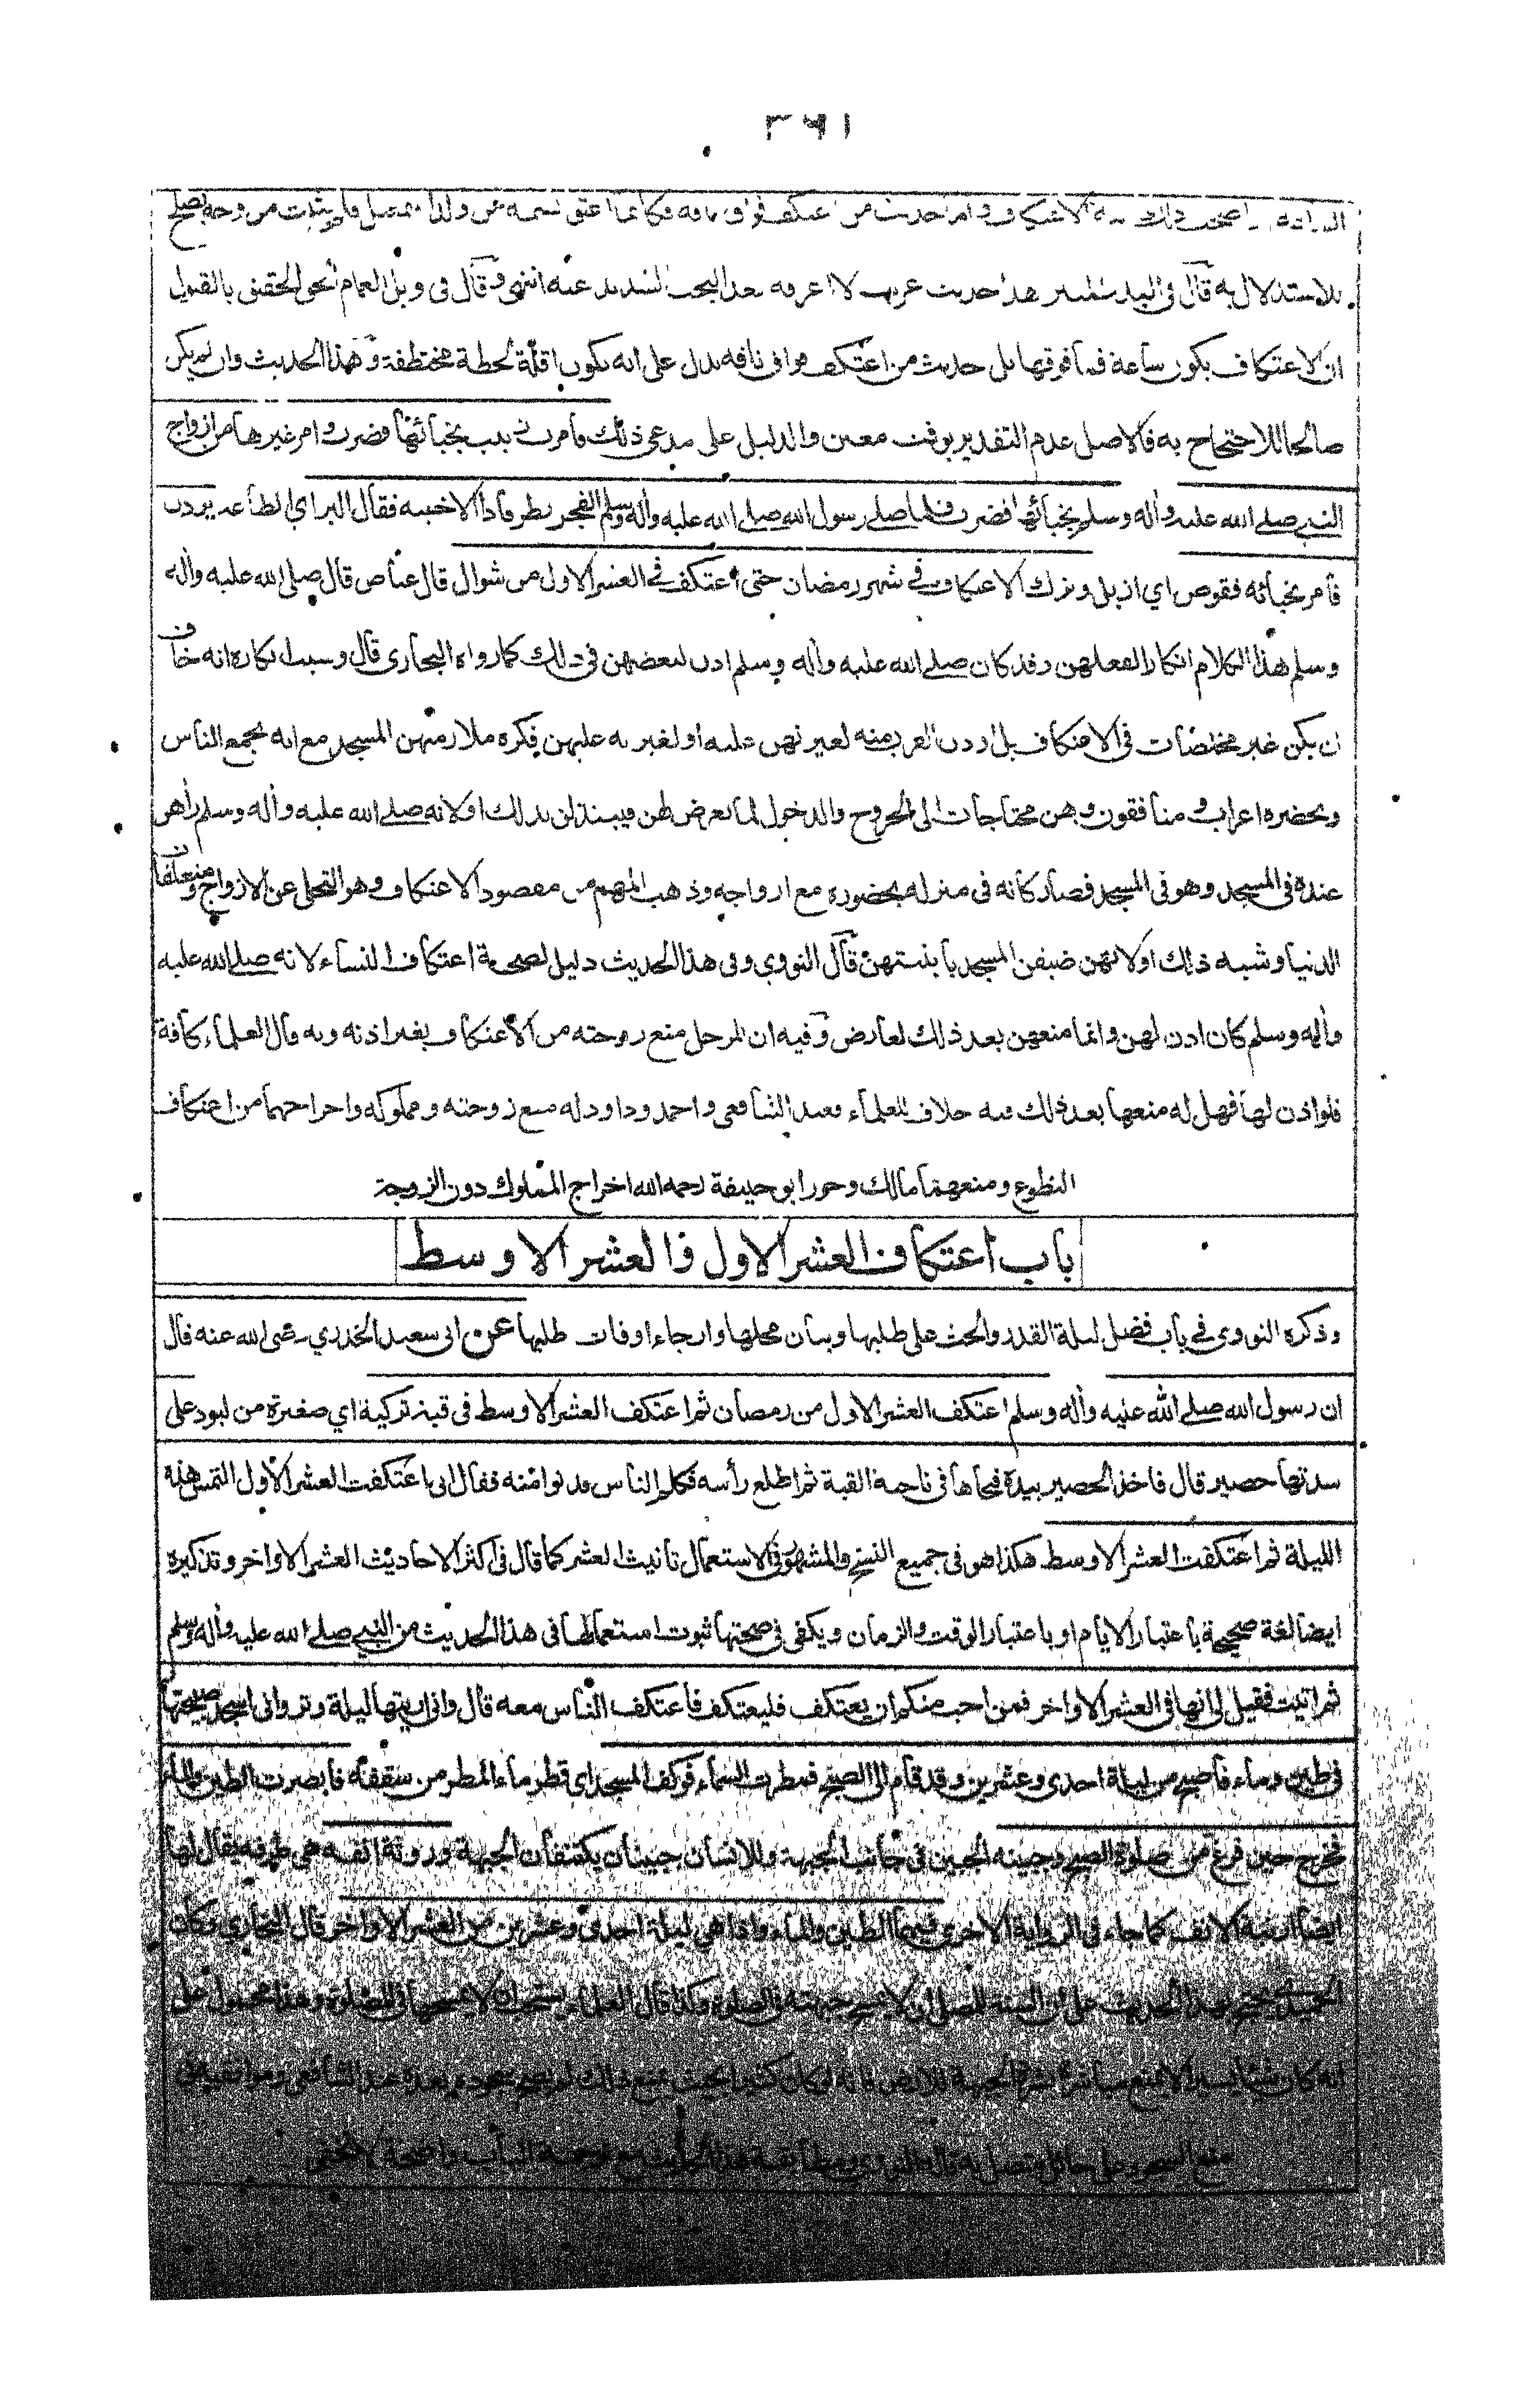 ٣٩١
من اعتكف فواق ناقة فكانما اعتق نسمة من ولد اسمعيل
للاستدلال به قال في البدر المنير هذا حديث غريب لا اعرفه بعد البحث الشديد عنه انتهى وقال في وبل الغمام الحق الحقيق بالقبول
ان الاعتكاف يكون ساعة فما فوقها بل حديث من اعتكف فواق ناقه يدل على انه يكون اقلة لحظة مختطفة وهذا الحديث وان لم يكن
صالحا للاحتجاج به فالاصل عدم التقدير بوقت معين والدليل على مدعي ذلك فامرت زينب بخبائها فضرب وامر غيرها من ازواج
النبي صلے الله عليه وأله وسلم بخبائها فضرب فلما صلے رسول الله صلے الله عليه وأله وسلم الفجر نظر فاذا الاخبية فقال البر اي الطاعة يردن
فأمر بخبائه فقوض اي ازيل وترك الاعتكاف في شهر رمضان حتى اعتكف في العشر الاول من شوال قال عياض قال صلى الله عليه وأله
وسلم هذا الكلام انكارا لفعلهن وقد كان صلے الله عليه وأله وسلم اذن لبعضهن في ذلك كما رواه البخاري قال وسبب انكاره انه خاف
ان يكن غير مخلصات في الاعتكاف بل اردن القرب منه لغيرتهن عليه او لغيرته عليهن فكره ملازمتهن المسجد مع انه يجمع الناس
ويحضره اعراب ومنافقون وهن محتاجات الى الخروج والدخول لما يعرض لهن فيبتذلن بذلك او لانه صلے الله عليه وأله وسلم راهن
عنده في المسجد وهو في المسجد فصار كانه في منزله بحضوره مع ازواجه وذهب المهم من مقصود الاعتكاف وهو التخلي عن الازواج ومتعلقات
الدنيا وشبه ذلك او لانهن ضيقن المسجد بابنيتهن قال النووي وفى هذا الحديث دليل لصحة اعتكاف النساء لانه صلے الله عليه
وأله وسلم كان اذن لهن وانما منعهن بعد ذلك لعارض وفيه ان للرجل منع زوجته من الاعتكاف بغير اذنه وبه قال العلماء كافة
فلو اذن لها فهل له منعها بعد ذلك فيه خلاف للعلماء فعند الشافعي واحمد وداود له منع زوجته ومملوكه واخراجهما من اعتكاف
التطوع ومنعهما مالك وجوز ابو حنيفة رحمه الله اخراج المملوك دون الزوجة
باب اعتكاف العشر الاول فالعشر الاوسط
وذكره النووي في باب فضل ليلة القدر والحث على طلبها وبيان محلها وارجاء اوقات طلبها عن ابى سعيد الخدري رضى الله عنه قال
ان رسول الله صلے الله عليه وأله وسلم اعتكف العشر الاول من رمضان ثم اعتكف العشر الاوسط في قبة تركية اي صغيرة من لبود على
سدتها حصير قال فاخذ الحصير بيده فنحاها في ناحية القبة ثم اطلع رأسه فكلم الناس فدنوا منه فقال انى اعتكفت العشر الاول التمس هذه
الليلة ثم اعتكفت العشر الاوسط هكذا هو في جميع النسخ والمشهور في الاستعمال تأنيث العشر كما قال في اكثر الاحاديث العشر الاواخر وتذكيره
ايضا لغة صحيحة باعتبار الايام او باعتبار الوقت والزمان ويكفي في صحتها ثبوت استعمالها في هذا الحديث من النبي صلے الله عليه وأله وسلم
ثم اتيت فقيل لي انها في العشر الاواخر فمن احب منكم ان يعتكف فليعتكف فاعتكف الناس معه قال وانى اريتها ليلة وتر وانى اسجد صبيحتها
في طين وماء فاصبح من ليلة احدى وعشرين وقد قام الى الصبح فمطرت السماء فوكف المسجد اي قطر ماء المطر من سقفه فابصرت الطين والماء
فخرج حين فرغ من صلوة الصبح وجبينه الجبين في جانب الجبهة وللانسان جبينان يكتنفان الجبهة وروثة انفه هي طرفه يقال لها
ايضا ارنبة الانف كما جاء في الرواية الاخرى فيهما الطين والماء واذا هي ليلة احدى وعشرين من العشر الاواخر قال البخاري وكان
الحميدي يحتج بهذا الحديث على ان السنة للمصلي ان لا يمسح جبهته في الصلوة وكذا قال العلماء يستحب ان لا يمسحها في الصلوة وهذا محمول على
انه كان شيئا يسيرا لا يمنع مباشرة بشرة الجبهة للارض فانه لو كان كثيرا بحيث يمنع ذلك لم يصح سجوده بعده عند الشافعي وموافقيه في
منع السجود على حائل متصل به قاله النووي ومطابقة هذا الحديث مع ترجمة الباب واضحة لا تخفى